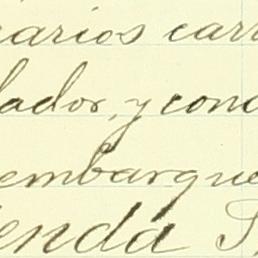 iarios carr
lador, y cond
embarque
ienda S